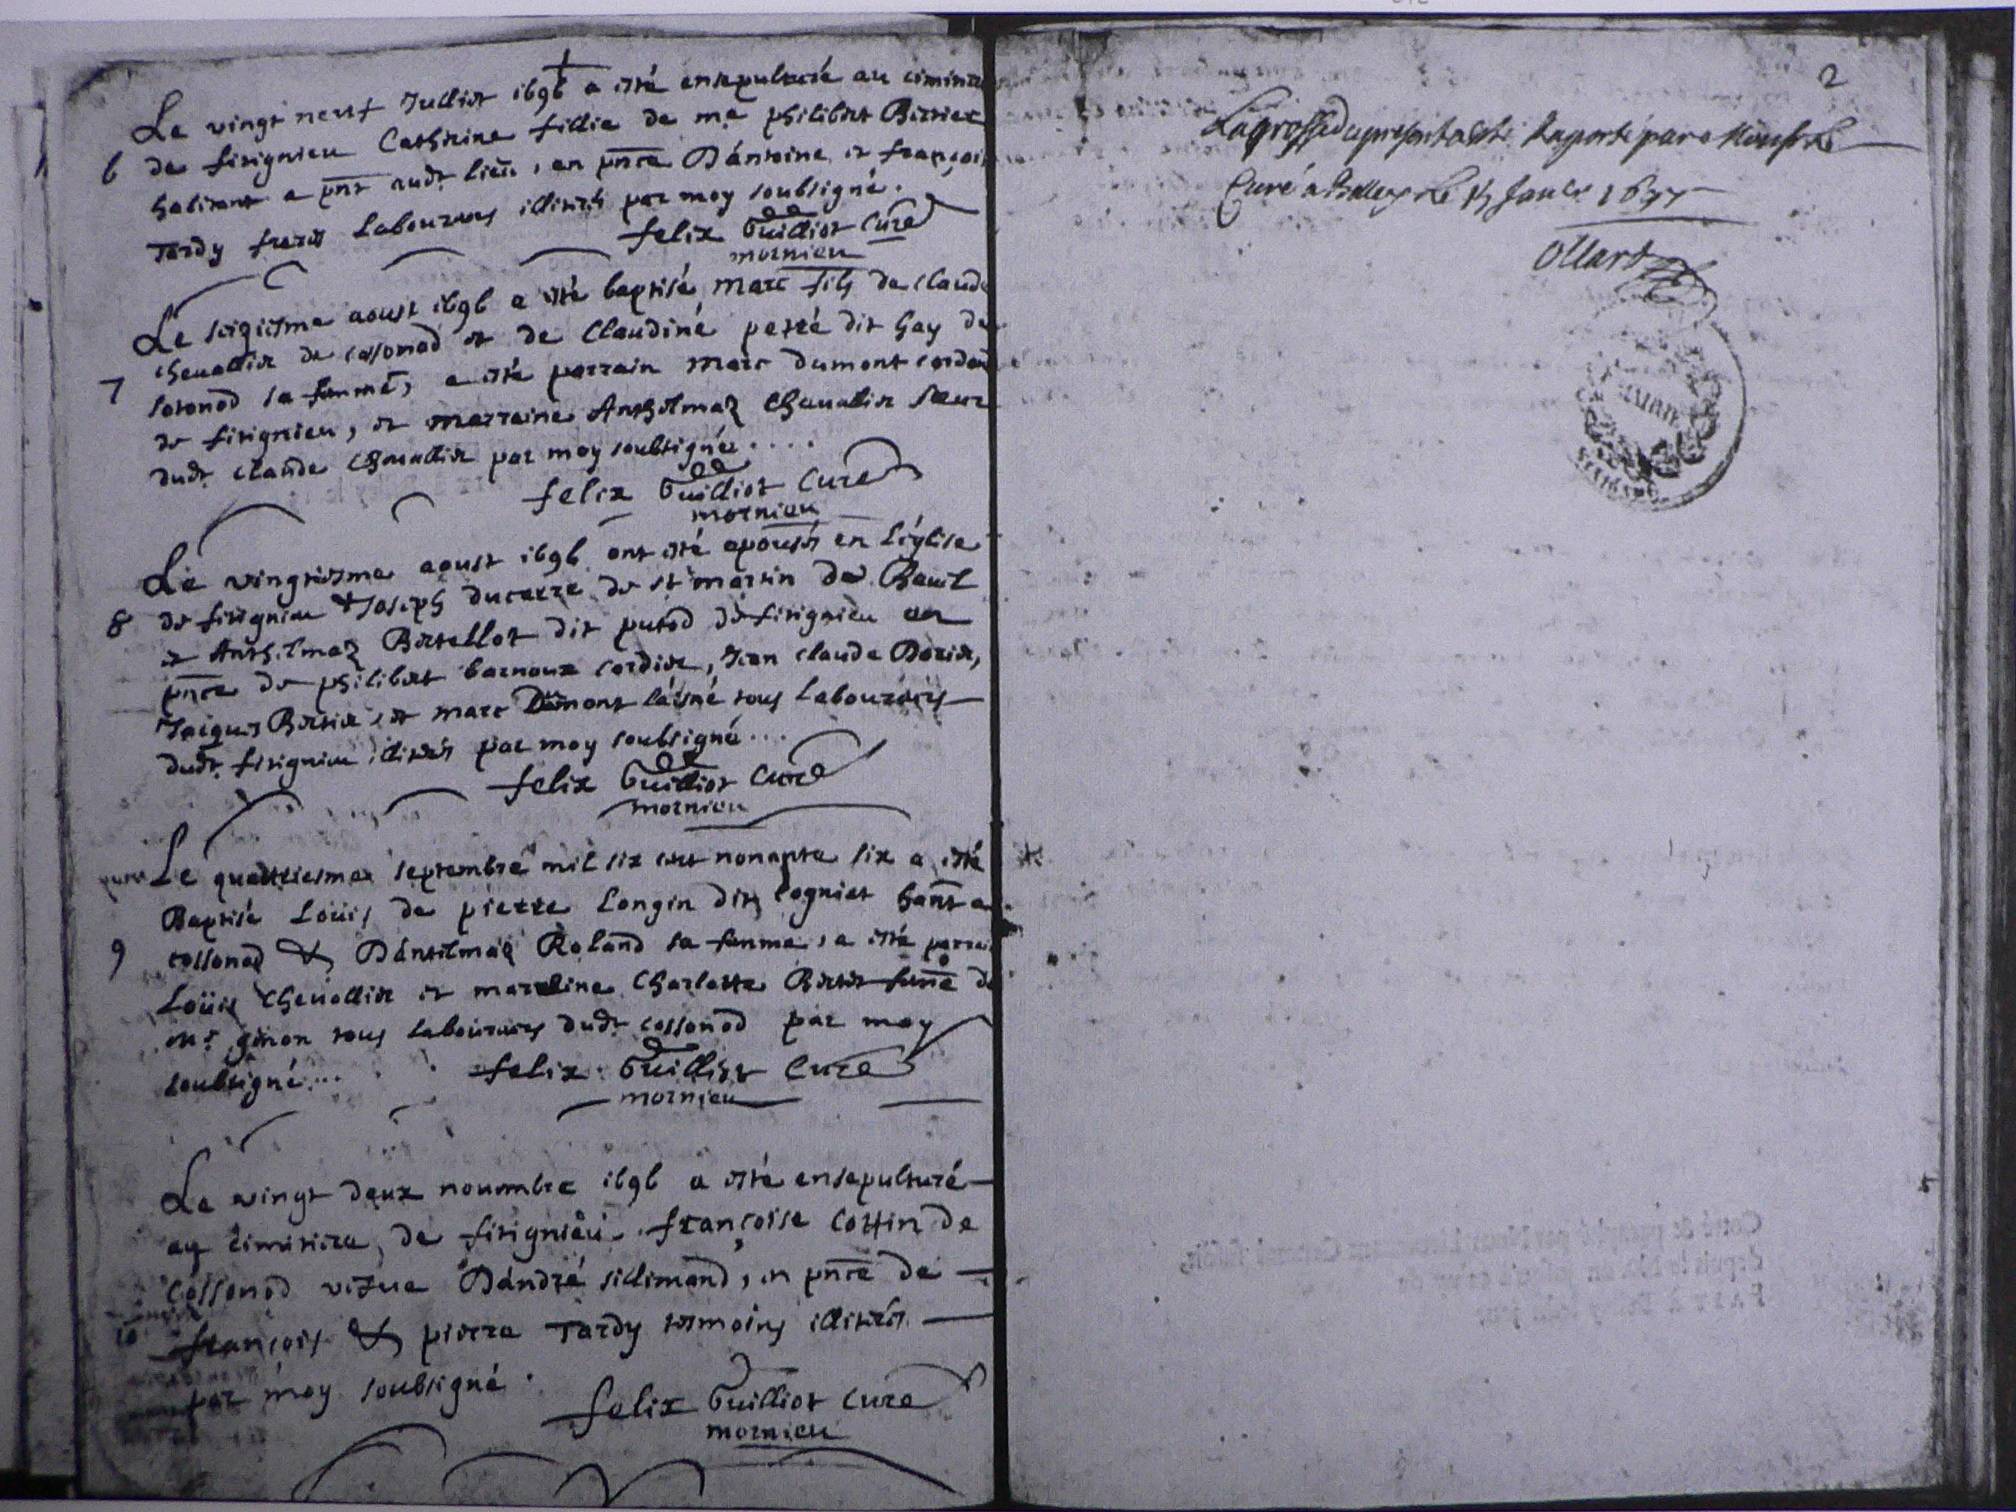 Le vingt neuf Julliet 1696 a esté ensepulturée au cimintiere
6 de firignieu Catherine fillie de me philibert Bertier
habitant a pnt audt lieu, en pnce D'antoine et françois
Tardy freres Laboureurs illiterés par moy soubsigné.
felix Guilliot Curé
mornieu
Le seiziesme aoust 1696 a esté baptisé marc fils de claude
chevallier de cossonod et de Claudine petré dit Gay de
7 sosonod sa femme, a esté parrain marc dumont
de firignieu, et marraine Anthelmaz Chevallier sœur
dudt claude Chevallier par moy soubsigné....
felix Guilliot Curé
mornieu
Le vingtiesme aoust 1696 ont esté epousés en L'église
8 de firignieu Joseph ducarre de st martin de Bavil
et Anthelmaz Bertellot dit putod de firignieu en
pnce de philibert barnoux cordier, Jean claude
Jacques Bertier, et marc Dumont l'aisné tous Laboureurs
dudt firignieu illiterés par moy soubsigné...
felix Guilliot Curé
mornieu
Le quattriesme septembre mil six cent nonante six a esté
Baptisé Loüis de pierre Longin dit cogniet habitant a
9 cossonod & D'antelmaz Roland sa femme, a esté parrain
Loüis Chevallier et marraine Charlotte Bertet feme de
mr ginon tous Laboureurs dudt cossonod par moy
soubsigné...
felix Guilliot Curé
mornieu
Le vingt deux novembre 1696 a esté ensepulturé
au cimitiere de firignieu françoise Cottin de
Cossonod vefue D'andré sillimand, en pnce de
10 françois & pierre Tardy tesmoins illiterés
par moy soubsigné.
felix Guilliot Curé
mornieu
2
La grosse du present a esté Raporté par
Curé a Belley Le Janvr 1697
Ollard
MAIRIE